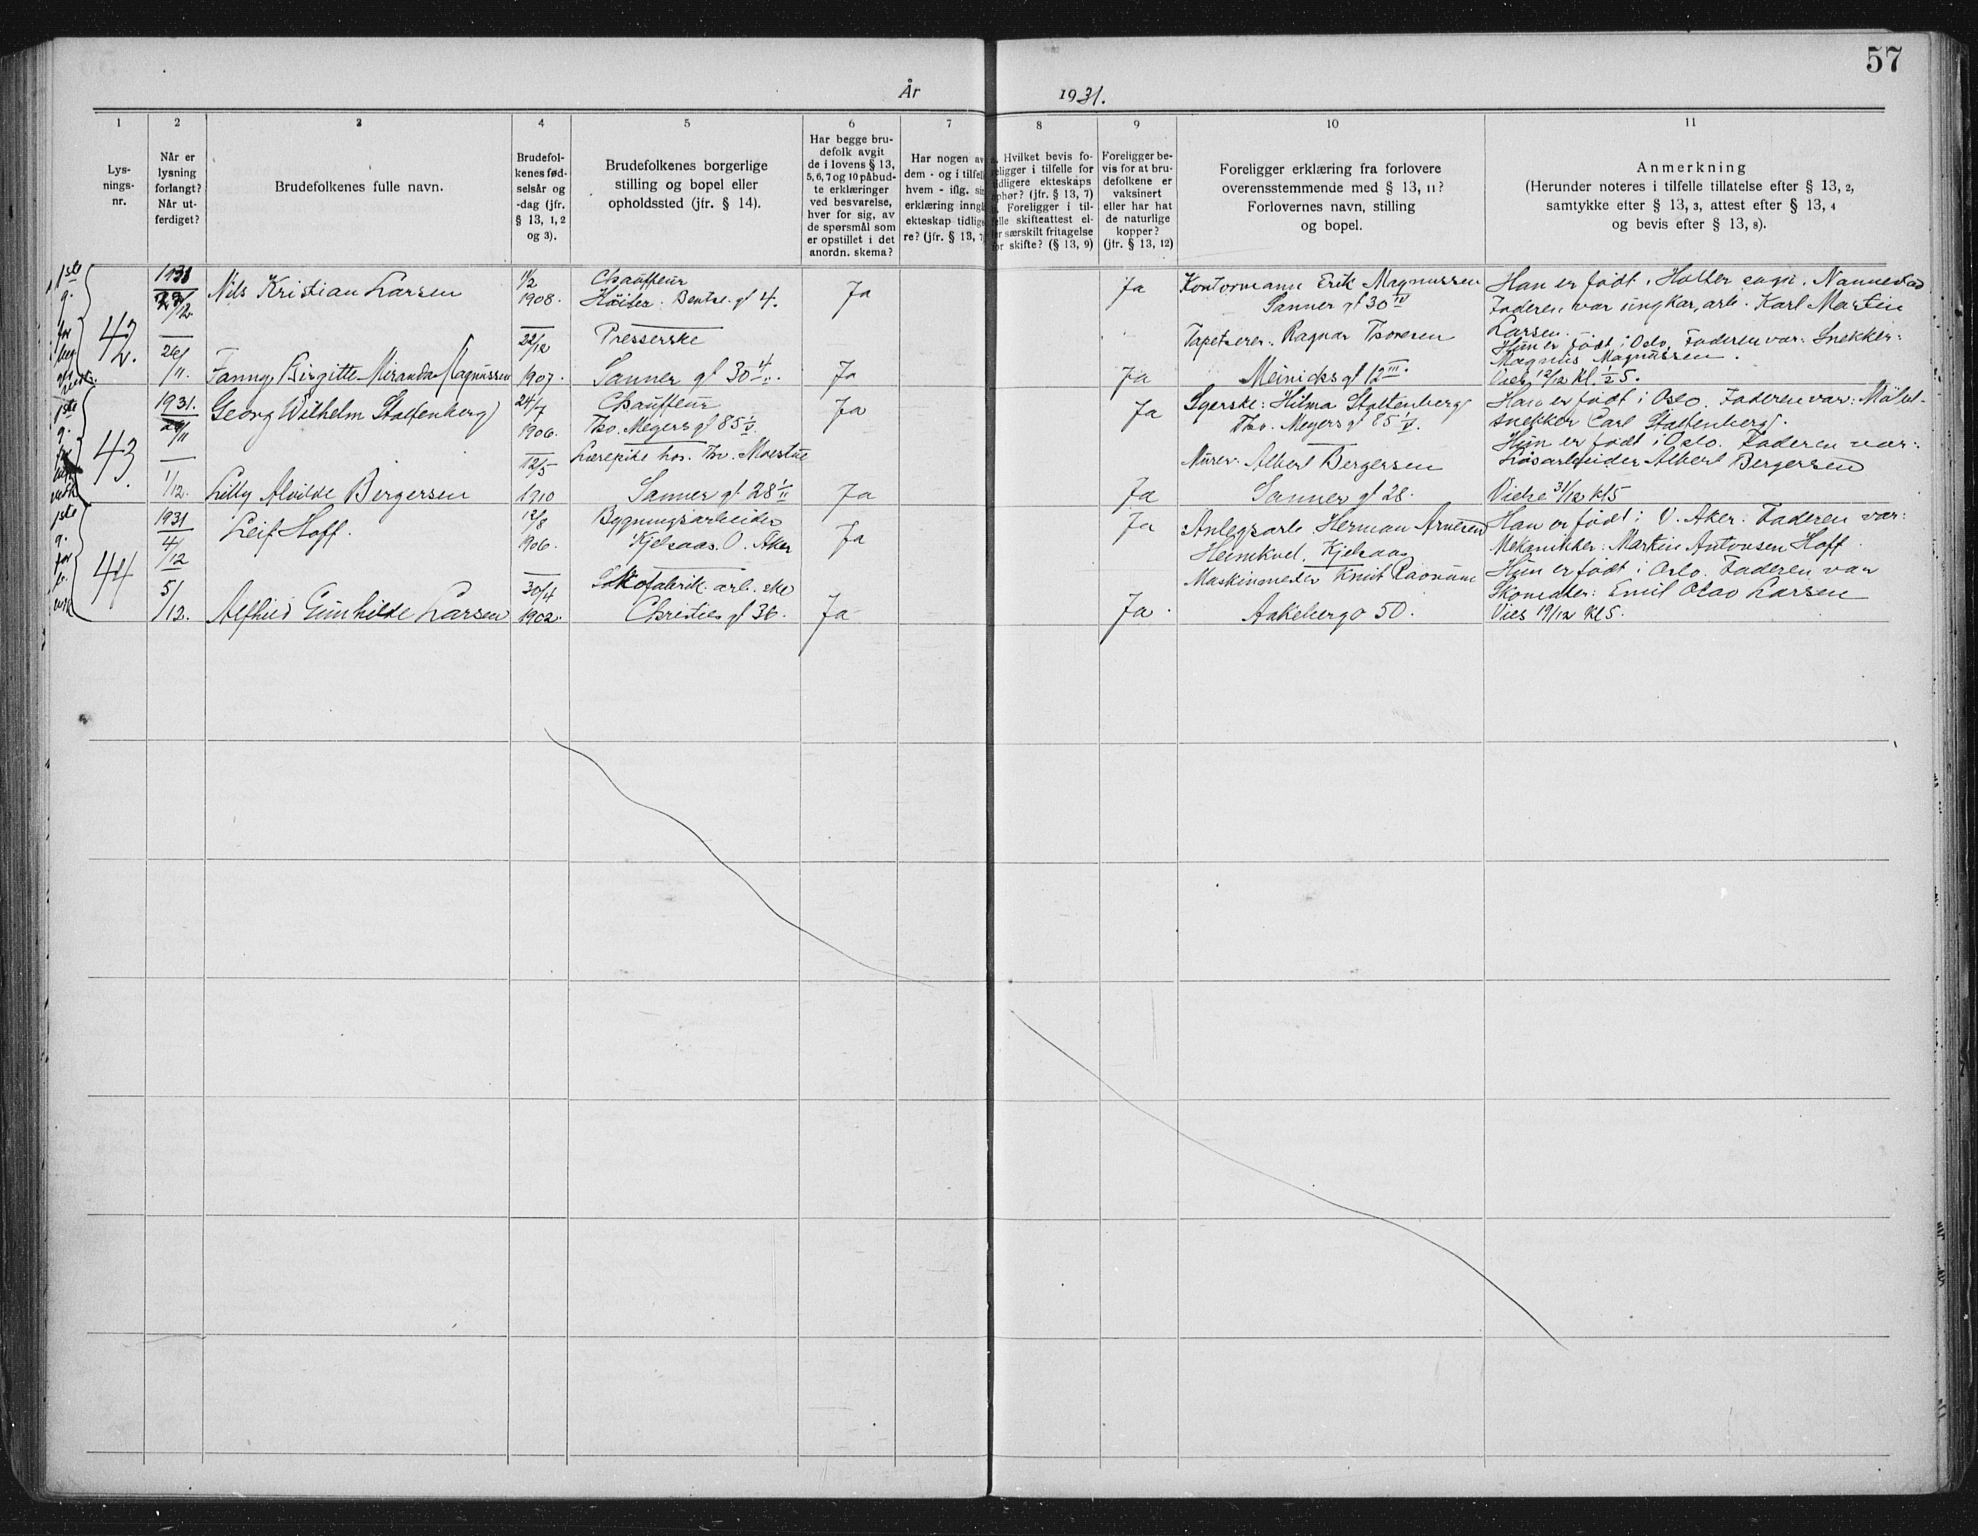 57
År 1931.
1 2 3 4 5 6 7 8 9 10 11
Lys-
nings-
nr.
Når er
lysning
forlangt?
Når ut-
ferdiget?
Brudefolkenes fulle navn.
Brudefol-
kenes fød-
selsår og
-dag (jfr.
§ 13, 1, 2
og 3).
Brudefolkenes borgerlige
stilling og bopel eller
opholdssted (jfr. § 14).
Har begge bru-
defolk avgit
de i lovens § 13,
5, 6, 7 og 10 påbud-
te erklæringer
ved besvarelse,
hver for sig, av
de spørsmål som
er opstillet i det
anordn. skema?
Har nogen av
dem - og i tilfelle
hvem - iflg. sin
erklæring inngå
ekteskap tidlige
re? (jfr. § 13, 7
Hvilket bevis fo-
religger i tilfelle for
tidligere ekteskaps
ophør? (jfr. § 13, 7)
Foreligger i til-
felle skifteattest el-
ler særskilt fritagelse
for skifte? (§ 13, 9)
Foreligger be-
vis for at bru-
defolkene er
vaksinert
eller har hat
de naturlige
kopper?
(jfr. § 13, 12)
Foreligger erklæring fra forlovere
overensstemmende med § 13, 11?
Forlovernes navn, stilling
og bopel.
Anmerkning
(Herunder noteres i tilfelle tillatelse efter § 13, 2,
samtykke efter § 13, 3, attest efter § 13, 4
og bevis efter § 13, 8).
1ste
g.
for
42.
1931
26/11
Nils Kristian Larsen
11/2
1908.
Chauffeur
Bentse gt 4.
Ja
Ja
Kontormann Erik Magnussen
Sanner gt 30 IV
Han er født i Holter sogn, Nannestad
Faderen var ungkar, arb. Karl Martin
Larsen.
Fanny Birgitte Miranda Magnussen
22/12
1907.
Presserske
Sanner gt 30
Ja
Ja
Tapetserer. Ragnar Thoresen
Meinicks gt 12 III.
Hun er født i Oslo, Faderen var: Snekker:
Magnus Magnussen.
Vies 12/12 Kl. ½ 5.
1ste
g.
for
43.
1931.
1/12.
Georg Wilhelm Stoltenberg
24/7
1906.
Chauffeur
Thv. Meyers gt 85
Ja
Ja
Syerske: Hilma Stoltenberg
Thv. Meyers gt 85
Han er født i Oslo. Faderen var: Møbel-
snekker Carl Stoltenberg.
Lilly Alvilde Bergersen
12/5
1910
Lærepike hos. Thv. Moestue
Sanner gt 28
Ja
Ja
Murer. Albert Bergersen
Sanner gt 28.
Hun er født i Oslo. Faderen var:
Løsarbeider Albert Bergersen
Viede 31/12 kl 5
1ste
g.
for
44
1931
4/12
5/12.
Leif Hoff.
12/8
1906.
Bygningsarbeider
Kjelsaas. O. Aker
Ja
Ja
Anlegsarb. Herman Arnesen
Heimkvel, Kjelsaas
Han er født i V. Aker. Faderen var:
Mekanikker: Martin Antonsen Hoff.
Alfhild Gunhilde Larsen
30/4
1902.
Skofabrik. arb. ske
Christies gt 36.
Ja
Ja.
Maskinmester Knut
Aakeberg 50.
Hun er født i Oslo. Faderen var
Skomaker: Emil Olav Larsen
Vies 19/12 Kl 5.